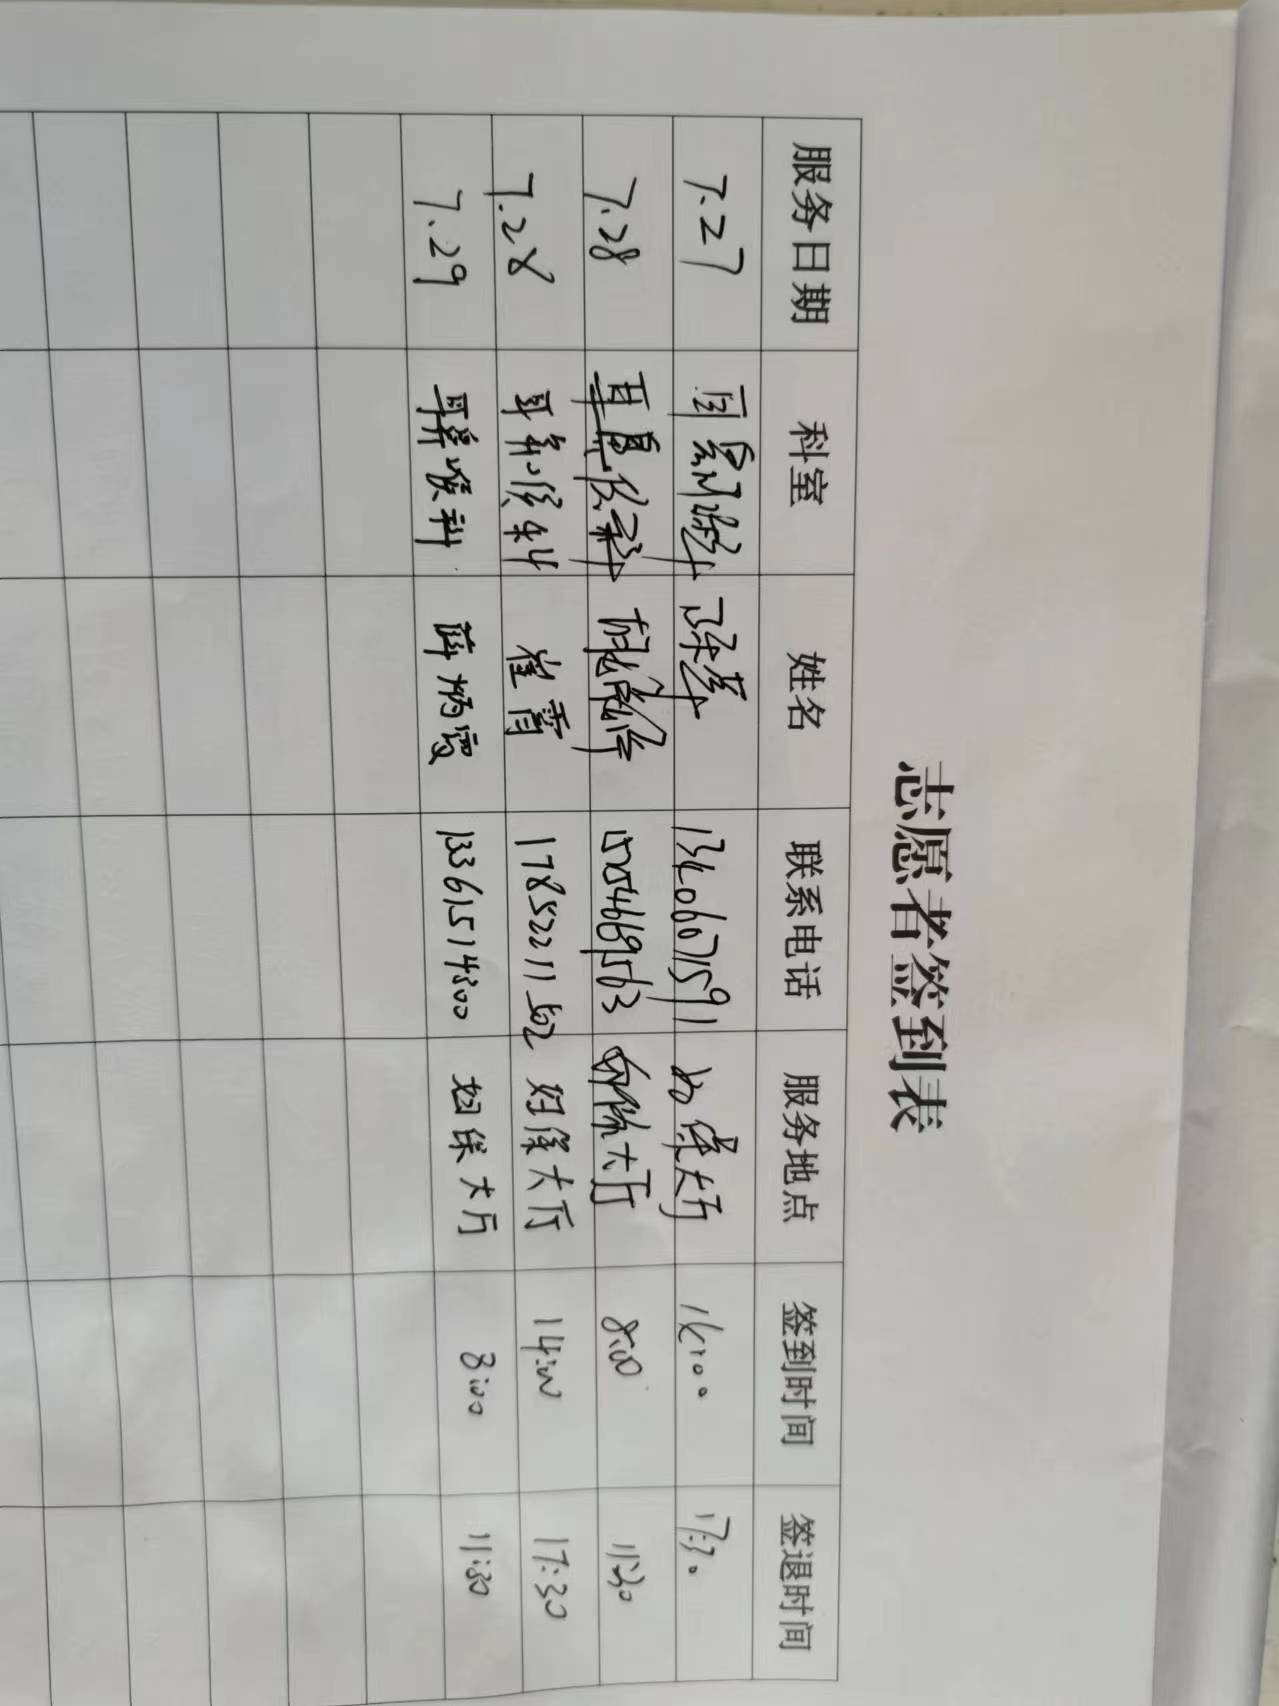 志愿者签到表
服务日期 科室 姓名 联系电话 服务地点 签到时间 签退时间
7.27 耳鼻喉科 大厅 17:30
7.28 耳鼻喉科 15054669563 妇保大厅 8:00 11:30
7.28 耳鼻喉科 崔雪 17852211502 妇保大厅 14:00 17:30
7.29 耳鼻喉科 薛炳霞 13361514300 妇保大厅 8:00 11:30